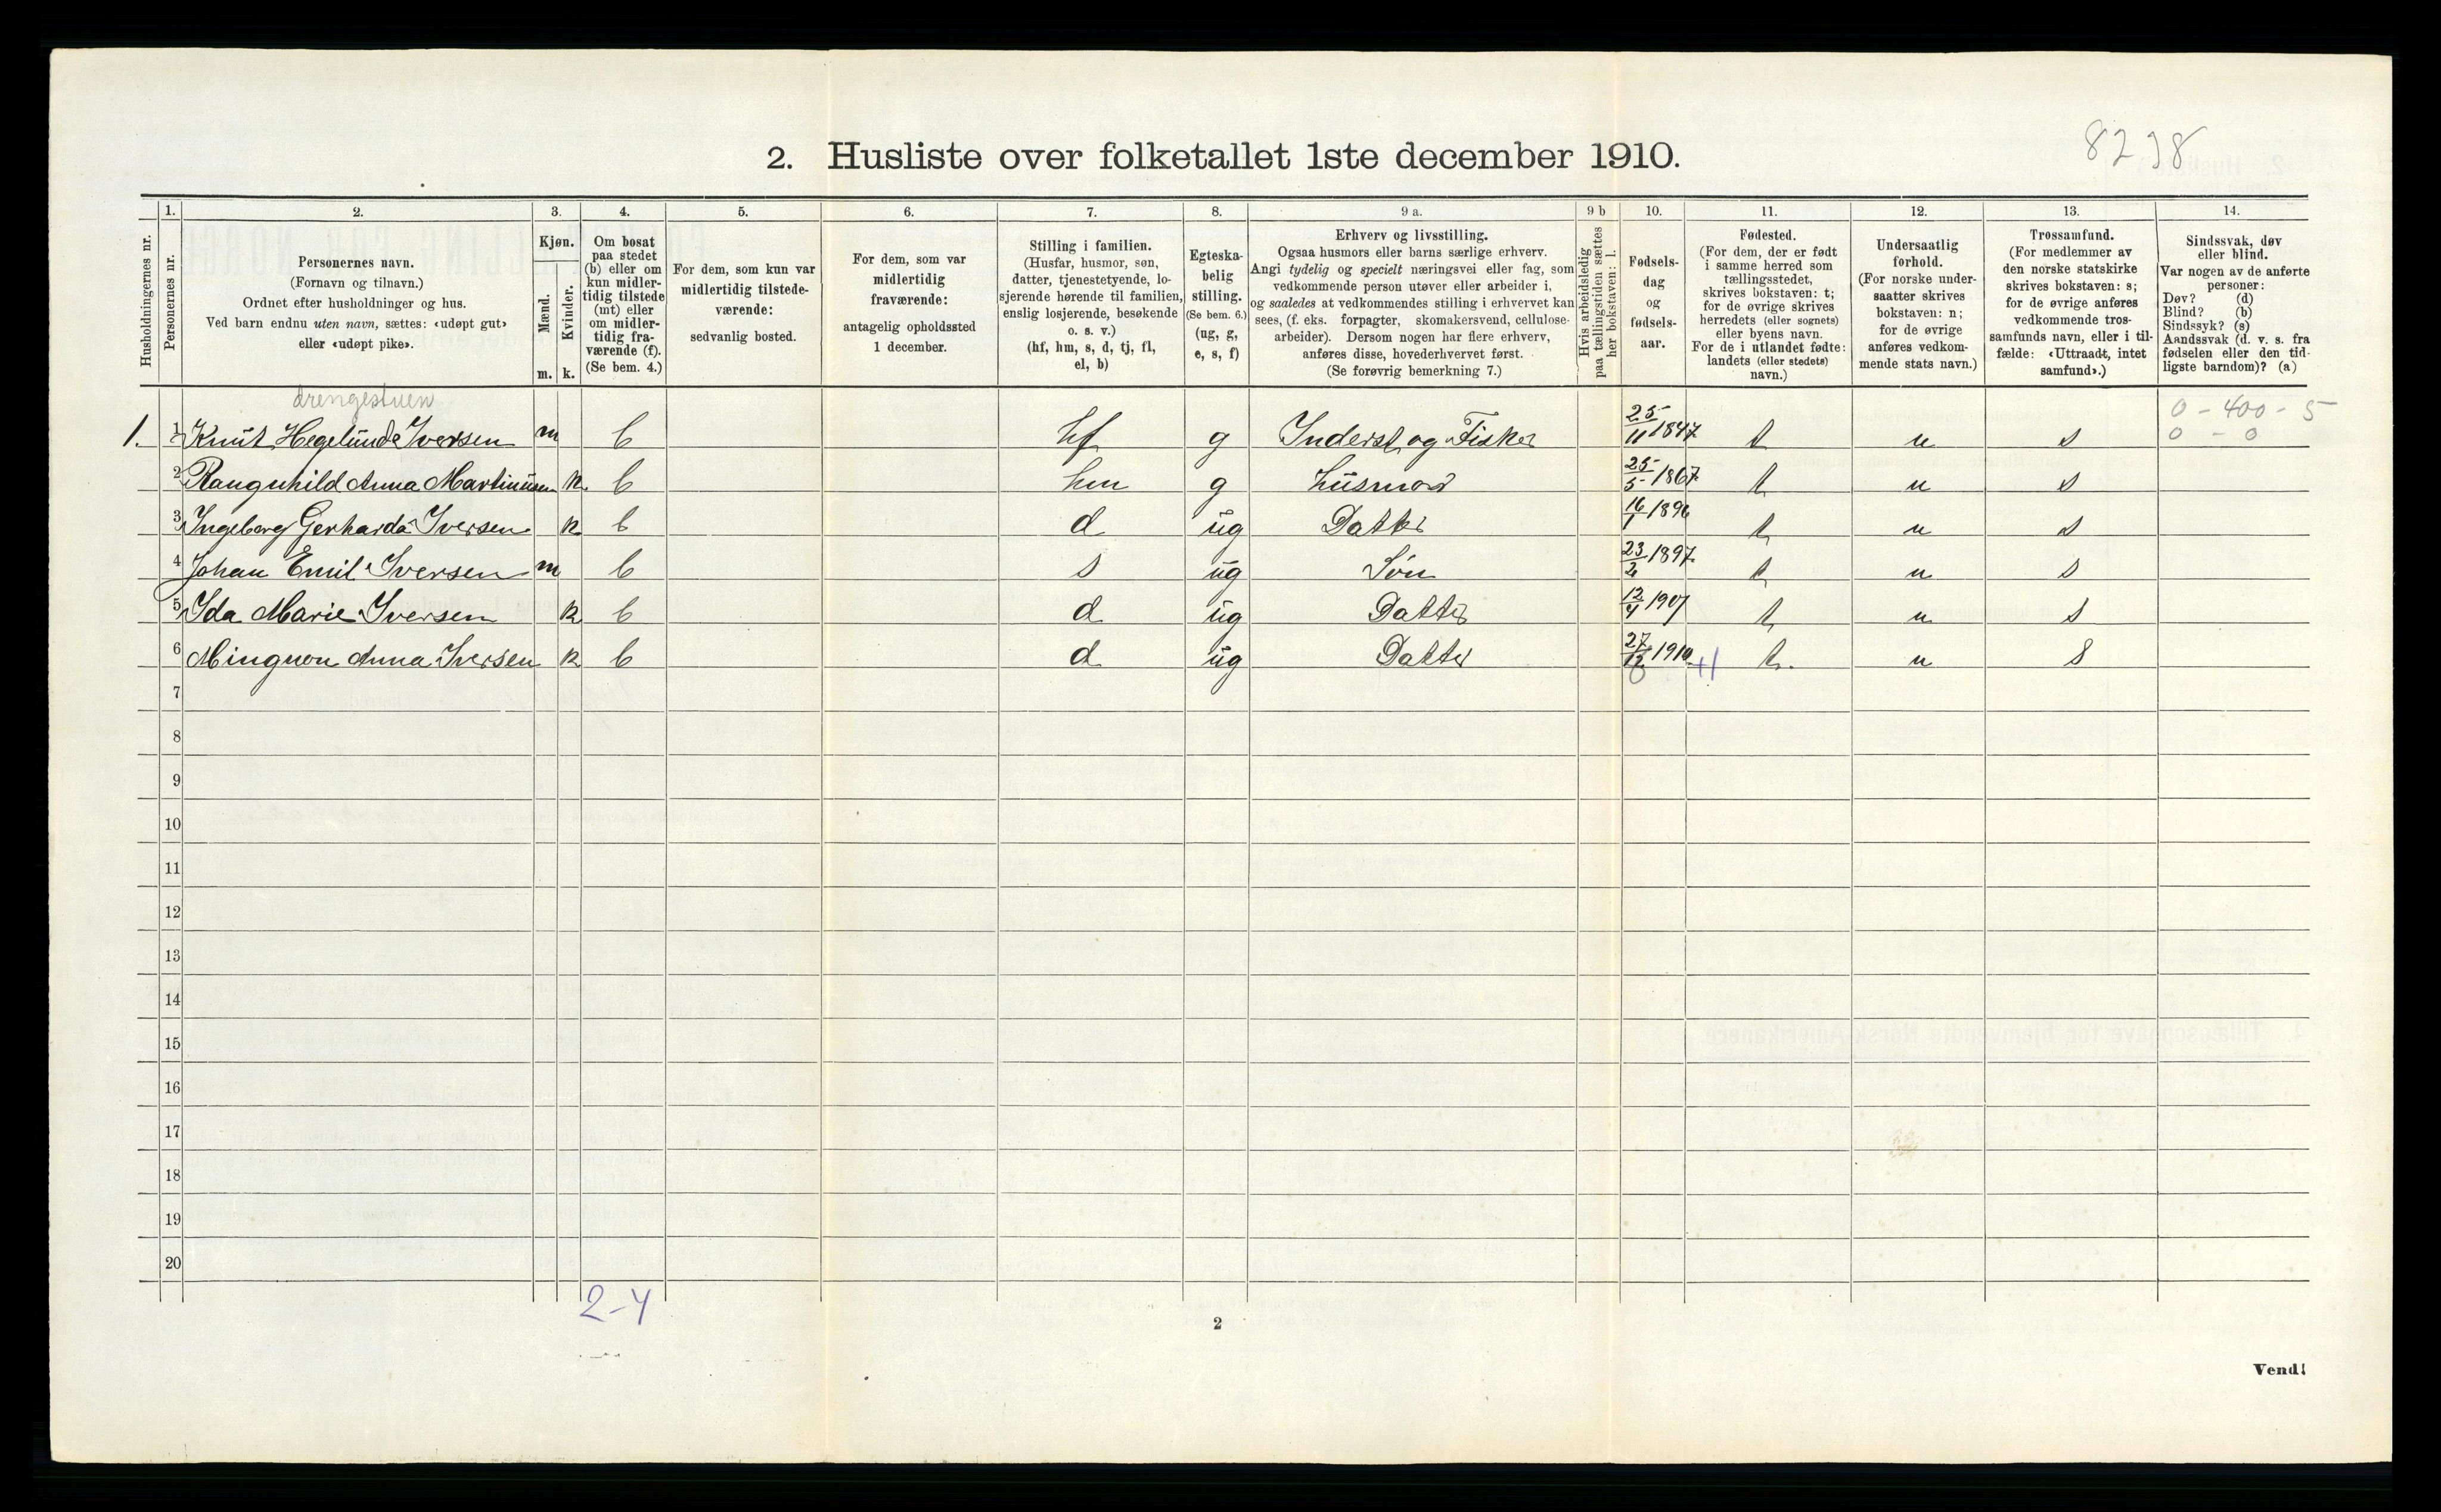 8238
2. Husliste over folketallet 1ste december 1910.
Husholdningernes nr.
1.
Personernes nr.
2.
Personernes navn.
(Fornavn og tilnavn.)
Ordnet efter husholdninger og hus.
Ved barn endnu uten navn, sættes: «udøpt gut»
eller «udøpt pike».
3.
Kjøn.
Mænd.
Kvinder.
m. k.
4.
Om bosat
paa stedet
(b) eller om
kun midler-
tidig tilstede
(mt) eller
om midler-
tidig fra-
værende (f).
(Se bem. 4.)
5.
For dem, som kun var
midlertidig tilstede-
værende:
sedvanlig bosted.
6.
For dem, som var
midlertidig
fraværende:
antagelig opholdssted
1 december.
7.
Stilling i familien.
(Husfar, husmor, søn,
datter, tjenestetyende, lo-
sjerende hørende til familien,
enslig losjerende, besøkende
o. s. v.)
(hf, hm, s, d, tj, fl,
el, b)
8.
Egteska-
belig
stilling.
(Se bem. 6.)
(ug, g,
e, s, f)
9 a.
Erhverv og livsstilling.
Ogsaa husmors eller barns særlige erhverv.
Angi tydelig og specielt næringsvei eller fag, som
vedkommende person utøver eller arbeider i,
og saaledes at vedkommendes stilling i erhvervet kan
sees, (f. eks. forpagter, skomakersvend, cellulose-
arbeider). Dersom nogen har flere erhverv,
anføres disse, hovederhvervet først.
(Se forøvrig bemerkning 7.)
9 b
Hvis arbeidsledig
paa tællingstiden sættes
her bokstaven: l.
10.
Fødsels-
dag
og
fødsels-
aar.
11.
Fødested.
(For dem, der er født
i samme herred som
tællingsstedet,
skrives bokstaven: t;
for de øvrige skrives
herredets (eller sognets)
eller byens navn.
For de i utlandet fødte:
landets (eller stedets)
navn.)
12.
Undersaatlig
forhold.
(For norske under-
saatter skrives
bokstaven: n;
for de øvrige
anføres vedkom-
mende stats navn.)
13.
Trossamfund.
(For medlemmer av
den norske statskirke
skrives bokstaven: s;
for de øvrige anføres
vedkommende tros-
samfunds navn, eller i til-
fælde: «Uttraadt, intet
samfund».)
14.
Sindssvak, døv
eller blind.
Var nogen av de anførte
personer:
Døv? (d)
Blind? (b)
Sindssyk? (s)
Aandssvak (d. v. s. fra
fødselen eller den tid-
ligste barndom)? (a)
drengestuen
0 - 400 - 5
0 - 0
1. 1 Knut Hegelund Iversen m b hf g Inderst og Fisker 25/11 1847 t n s
2 Rangnhild Anna Martinusen k. b hm g Husmor 25/5 1867 t n s
3 Ingeborg Gerharda Iversen k b d ug Datter 16/1 1896 t n s
4 Johan Emil Iversen m b s ug Søn 23/2 1897 t n s
5 Ida Marie Iversen k b d ug Datter 12/4 1907 t n s
6 Mingnon Anna Iversen k b d ug Datter 27/12 1910 +1 t. n s
7
8
9
10
11
12
13
14
15
16
17
18
19
20
2-4
2
Vend!